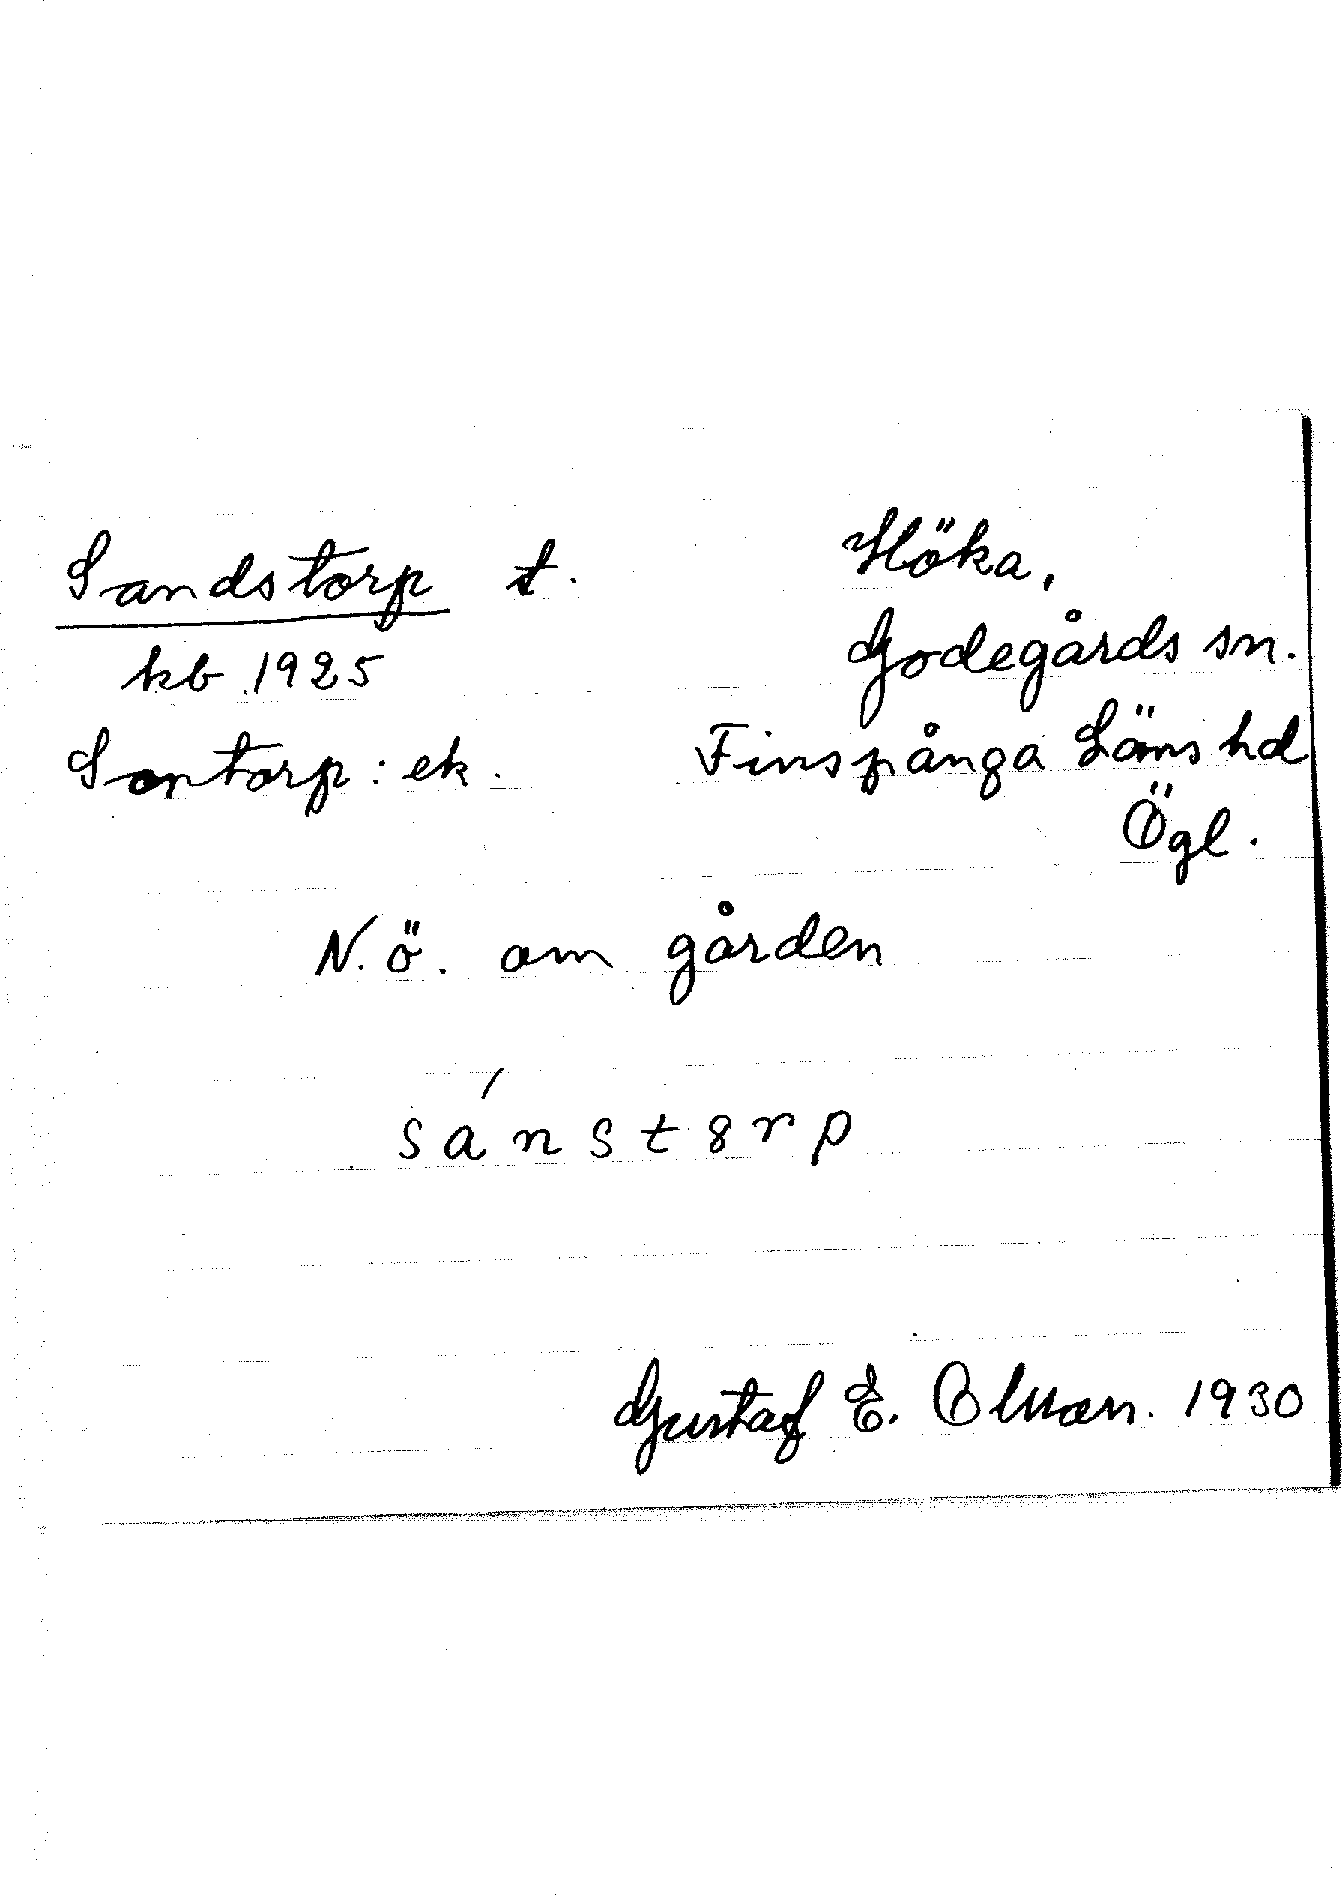 Sandstorp t.
kb 1925
Santorp: ek.
Höka,
Godegårds sn.
Finspånga Läns hd
Ögl.
N.ö. om gården
sánstɞrp
Gustaf E. 1930